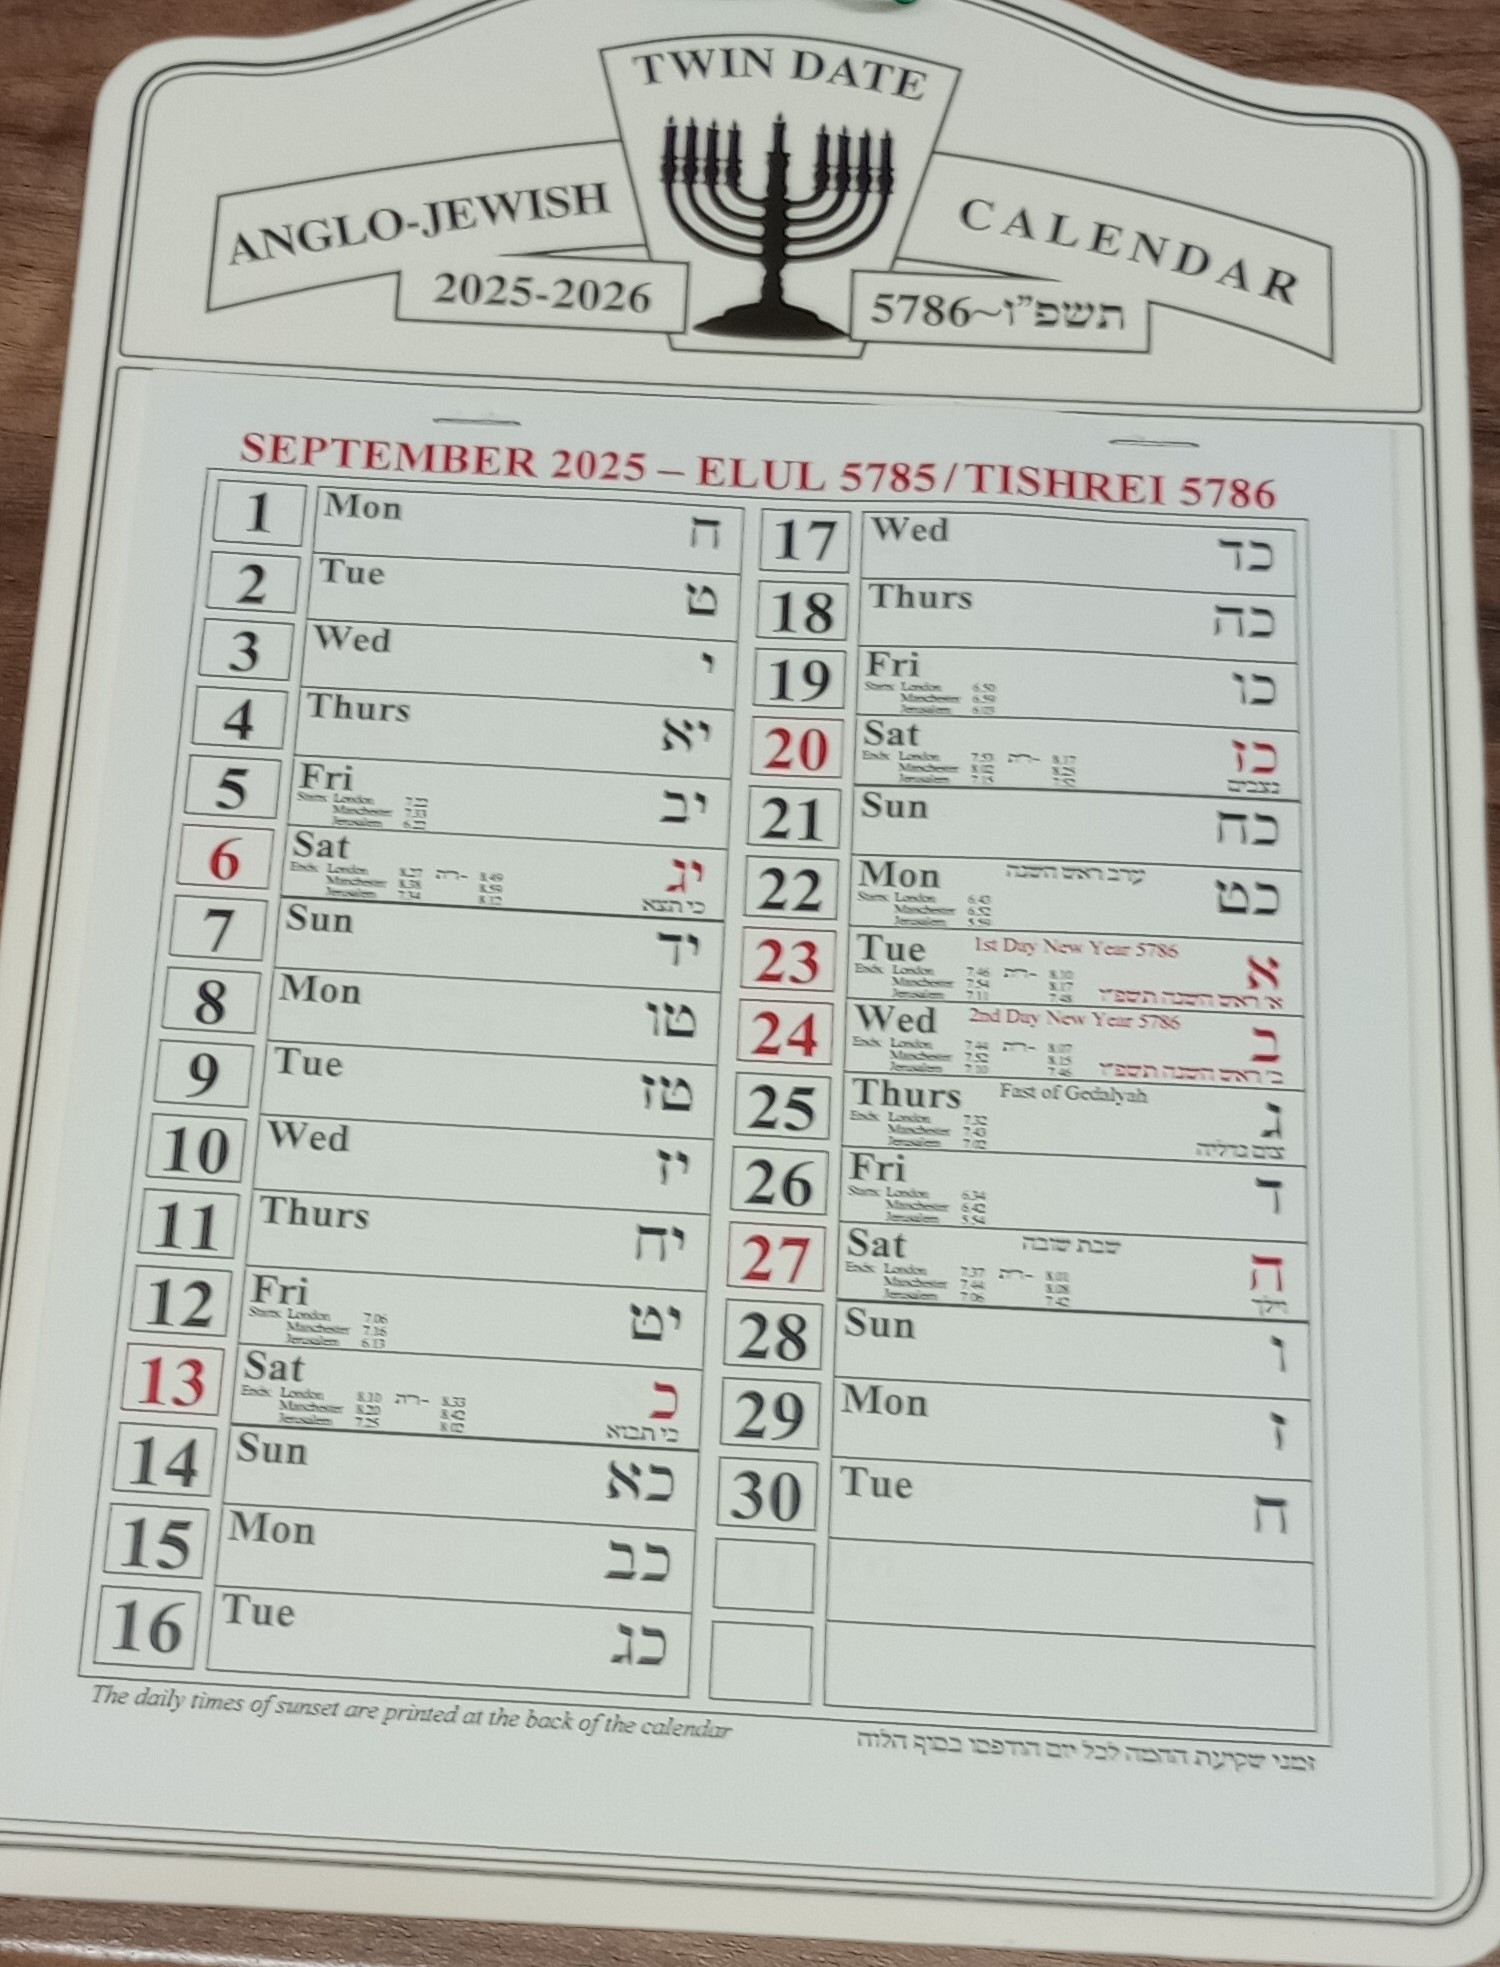 TWIN DATE
ANGLO-JEWISH
CALENDAR
2025-2026
5786~תשפ"ו
SEPTEMBER 2025 – ELUL 5785/TISHREI 5786
1 Mon ח
2 Tue ט
3 Wed י
4 Thurs יא
5 Fri יב
Starts London 7.22
Manchester 7.33
Jerusalem 6.22
6 Sat יג
Ends London 8.27 ר״ת– 8.49
Manchester 8.38 8.59
Jerusalem 7.34 8.12
כי תצא
7 Sun יד
8 Mon טו
9 Tue טז
10 Wed יז
11 Thurs יח
12 Fri יט
Starts London 7.06
Manchester 7.16
Jerusalem 6.13
13 Sat כ
Ends London 8.10 ר״ת– 8.33
Manchester 8.20 8.42
Jerusalem 7.25 8.02
כי תבוא
14 Sun כא
15 Mon כב
16 Tue כג
17 Wed כד
18 Thurs כה
19 Fri כו
Starts London 6.50
Manchester 6.59
Jerusalem 6.03
20 Sat כז
Ends London 7.53 ר״ת– 8.17
Manchester 8.02 8.25
Jerusalem 7.15 7.52
נצבים
21 Sun כח
22 Mon ערב ראש השנה כט
Starts London 6.43
Manchester 6.52
Jerusalem 5.59
23 Tue 1st Day New Year 5786 א
Ends London 7.46 ר״ת– 8.10
Manchester 7.54 8.17
Jerusalem 7.11 7.48
א׳ ראש השנה תשפ״ו
24 Wed 2nd Day New Year 5786 ב
Ends London 7.44 ר״ת– 8.07
Manchester 7.52 8.15
Jerusalem 7.10 7.46
ב׳ ראש השנה תשפ״ו
25 Thurs Fast of Gedalyah ג
Ends London 7.32
Manchester 7.43
Jerusalem 7.02
צום גדליה
26 Fri ד
Starts London 6.34
Manchester 6.42
Jerusalem 5.54
27 Sat שבת שובה ה
Ends London 7.37 ר״ת– 8.01
Manchester 7.44 8.08
Jerusalem 7.06 7.42
וילך
28 Sun ו
29 Mon ז
30 Tue ח
The daily times of sunset are printed at the back of the calendar
זמני שקיעת החמה לכל יום הודפסו בסוף הלוח